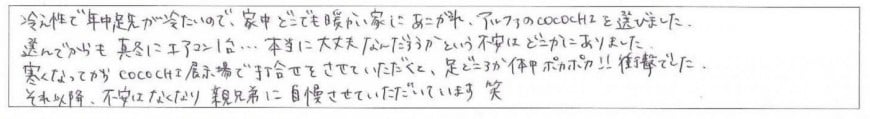 冷え性で年中足先が冷たいので、家中どこでも暖かい家にあこがれ、アルファのCOCOCHIを選びました。
選んでからも真冬にエアコン1台…本当に大丈夫なんだろうかという不安はどこかにありました。
寒くなってからCOCOCHI展示場で打合せをさせていただくと、足どころか体中ポカポカ!!衝撃でした。
それ以降、不安はなくなり親兄弟に自慢させていただいています 笑